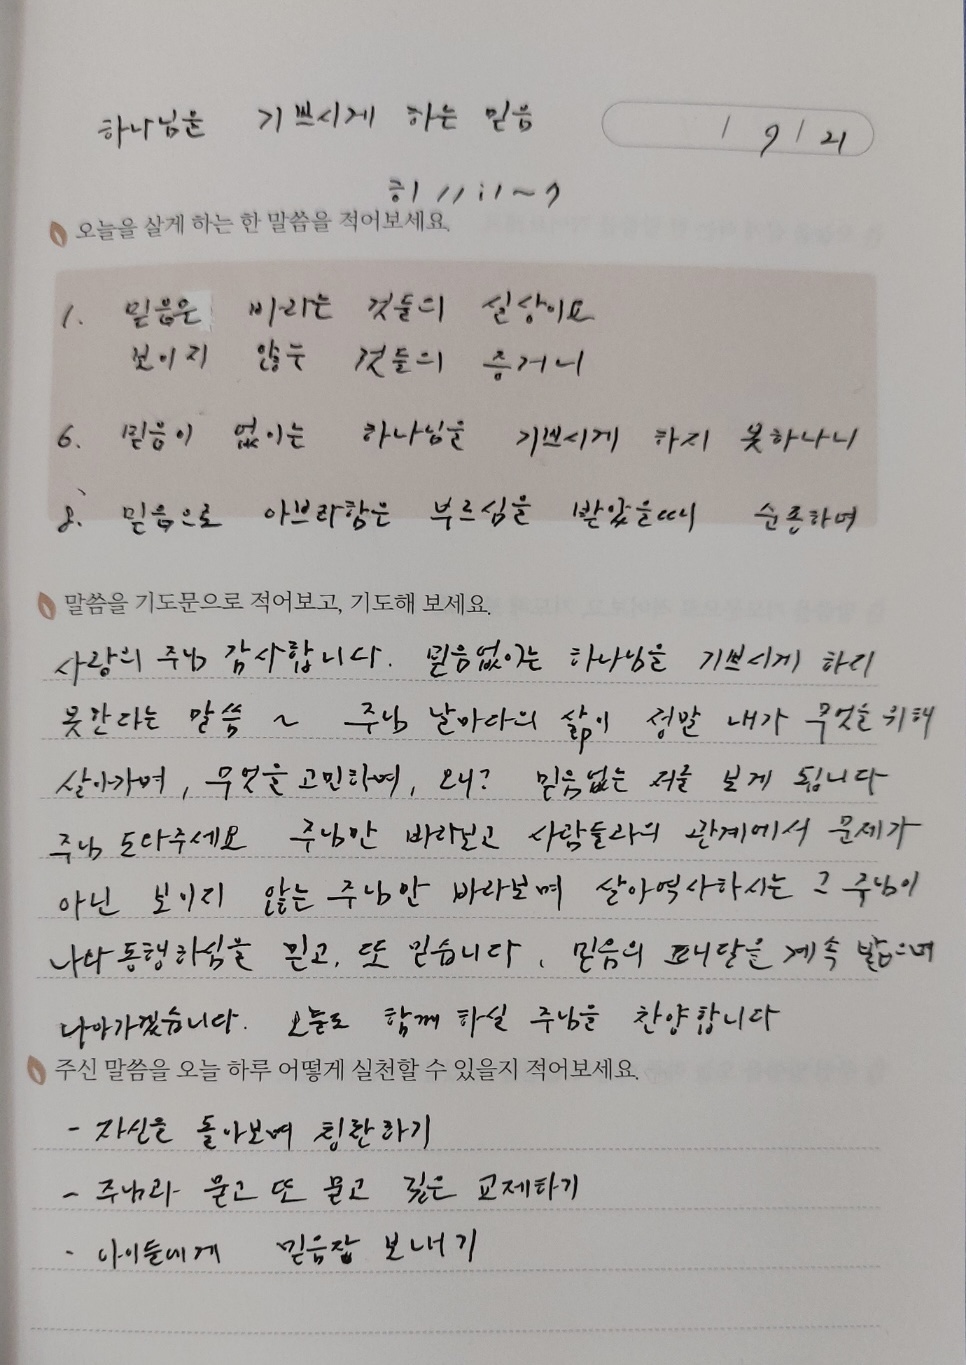 하나님을 기쁘시게 하는 믿음
/ 9 / 21
히 11:1~7
오늘을 살게 하는 한 말씀을 적어보세요.
1. 믿음은 바라는 것들의 실상이요
보이지 않는 것들의 증거니
6. 믿음이 없이는 하나님을 기쁘시게 하지 못하나니
8. 믿음으로 아브라함은 부르심을 받았을때 순종하여
말씀을 기도문으로 적어보고, 기도해 보세요.
사랑의 주님 감사합니다. 믿음없이는 하나님을 기쁘시게 하지
못한다는 말씀 ~ 주님 날마다의 삶이 정말 내가 무엇을 위해
살아가며, 무엇을 고민하며, 왜? 믿음없는 저를 보게 됩니다
주님 도와주세요 주님만 바라보고 사람들과의 관계에서 문제가
아닌 보이지 않는 주님만 바라보며 살아역사하시는 그 주님이
나와 동행하심을 믿고, 또 믿습니다. 믿음의 페달을 계속 밟으며
나아가겠습니다. 오늘도 함께 하실 주님을 찬양합니다
주신 말씀을 오늘 하루 어떻게 실천할 수 있을지 적어보세요.
- 자신을 돌아보며 칭찬하기
- 주님과 묻고 또 묻고 깊은 교제하기
- 아이들에게 믿음잡 보내기